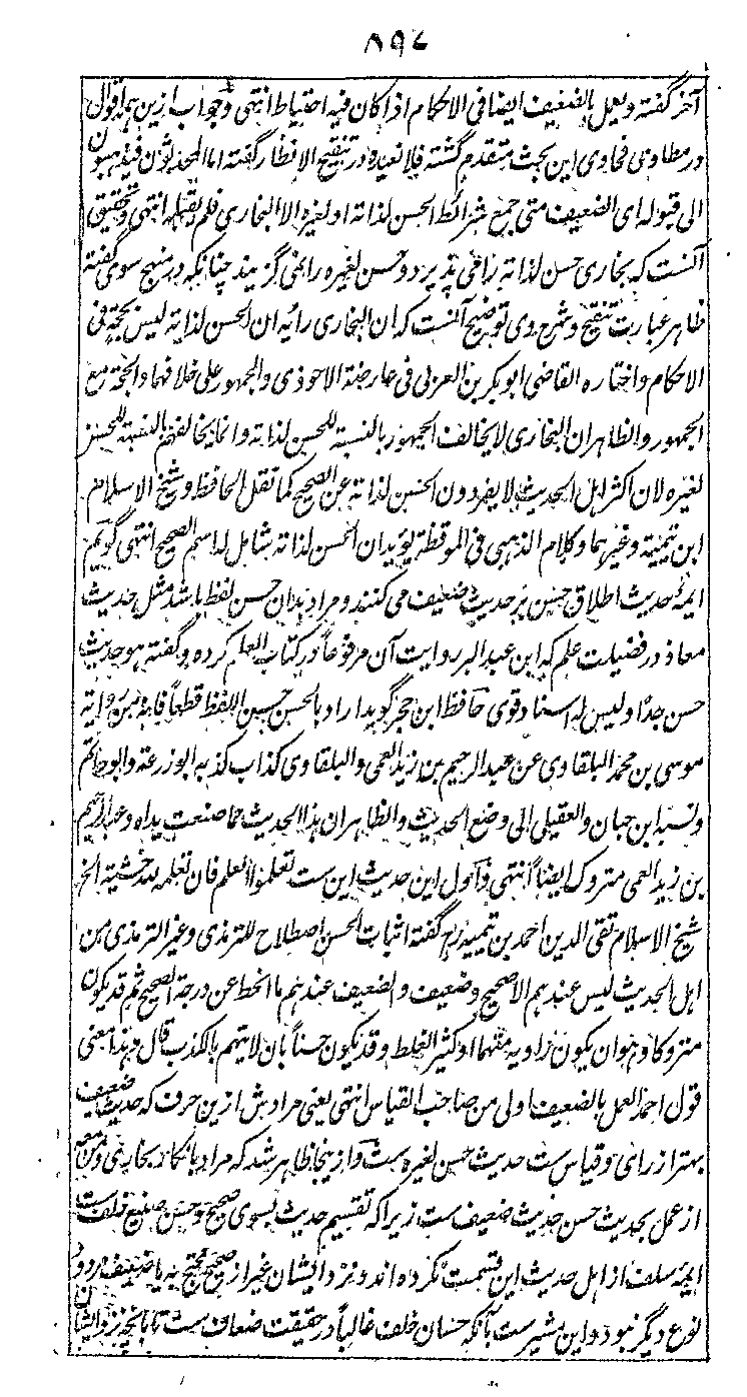 ٨٩٤
آخر گفته و یعمل بالضعیف ایضا فی الاحکام اذا کان فیه احتیاط انتهی و جواب ازین همه اقوال
در مطاوی فحاوی این بحث متقدم گشته فلا نعیده و در تنقیح الانظار گفته اما المحدثون فیذهبون
الی قبوله ای الضعیف متی جمع شرائط الحسن لذاته او لغیره الا البخاری فلم یقبله انتهی و تحقیق
آنست که بخاری حسن لذاته را می پذیرد و حسن لغیره را نمی گزیند چنانکه در منهج سوی گفته
ظاهر عبارت تنقیح و شرح وی توضیح آنست که ان البخاری رایه ان الحسن لذاته لیس بحجة فی
الاحکام و اختاره القاضی ابو بکر بن العربی فی عارضة الاحوذی و الجمهور علی خلافهما و الحجة مع
الجمهور و الظاهر ان البخاری لا یخالف الجمهور بالنسبة للحسن لذاته و انما یخالفهم بالنسبة للحسن
لغیره لان اکثر اهل الحدیث لا یفردون الحسن لذاته عن الصحیح کما نقل الحافظ و شیخ الاسلام
ابن تیمیة و غیرهما و کلام الذهبی فی الموقظة یؤید ان الحسن لذاته شامل له اسم الصحیح انتهی گویم
ایمۀ حدیث اطلاق حسن بر حدیث ضعیف می کنند و مراد بدان حسن لفظ باشد مثل حدیث
معاذ در فضیلت علم که ابن عبد البر روایت آن مرفوعاً در کتاب العلم کرده و گفته هو حدیث
حسن جدّا و لیس له اسناد قوی حافظ ابن حجر گوید اراد بالحسن حسن اللفظ قطعاً فانه من روایة
موسی بن محمد البلقاوی عن عبد الرحیم بن زید العمی و البلقاوی کذاب کذبه ابو زرعة و ابو حاتم
و نسبه ابن حبان و العقیلی الی وضع الحدیث و الظاهر ان هذا الحدیث مما صنعت یداه و عبد الرحیم
بن زید العمی متروک ایضاً انتهی و اول این حدیث این ست تعلموا العلم فان تعلمه لله خشیة الخ
شیخ الاسلام تقی الدین احمد بن تیمیه رح گفته اثبات الحسن اصطلاح للترمذی و غیر الترمذی من
اهل الحدیث لیس عندهم الا صحیح و ضعیف و الضعیف عندهم ما انحط عن درجة الصحیح ثم قد یکون
متروکا و هو ان یکون راویه متهما او کثیر الغلط و قد یکون حسناً بان لا یتهم بالکذب قال و هذا معنی
قول احمد العمل بالضعیف اولی من صاحب القیاس انتهی یعنی مرادش ازین حرف که حدیث ضعیف
بهتر از رای و قیاس ست حدیث حسن لغیره ست و از ینجا ظاهر شد که مراد بانکار بخاری و من معه
از عمل بحدیث حسن حدیث ضعیف ست زیرا که تقسیم حدیث بسوی صحیح و حسن صنیع خلف ست
ایمۀ سلف از اهل حدیث این قسمت نکرده اند و نزد ایشان غیر از صحیح محتج به یا ضعیف مردود
نوع دیگر نبود و این مشیر ست بآنکه حسان خلف غالباً در حقیقت ضعاف ست تا بآنچه نزد ایشان